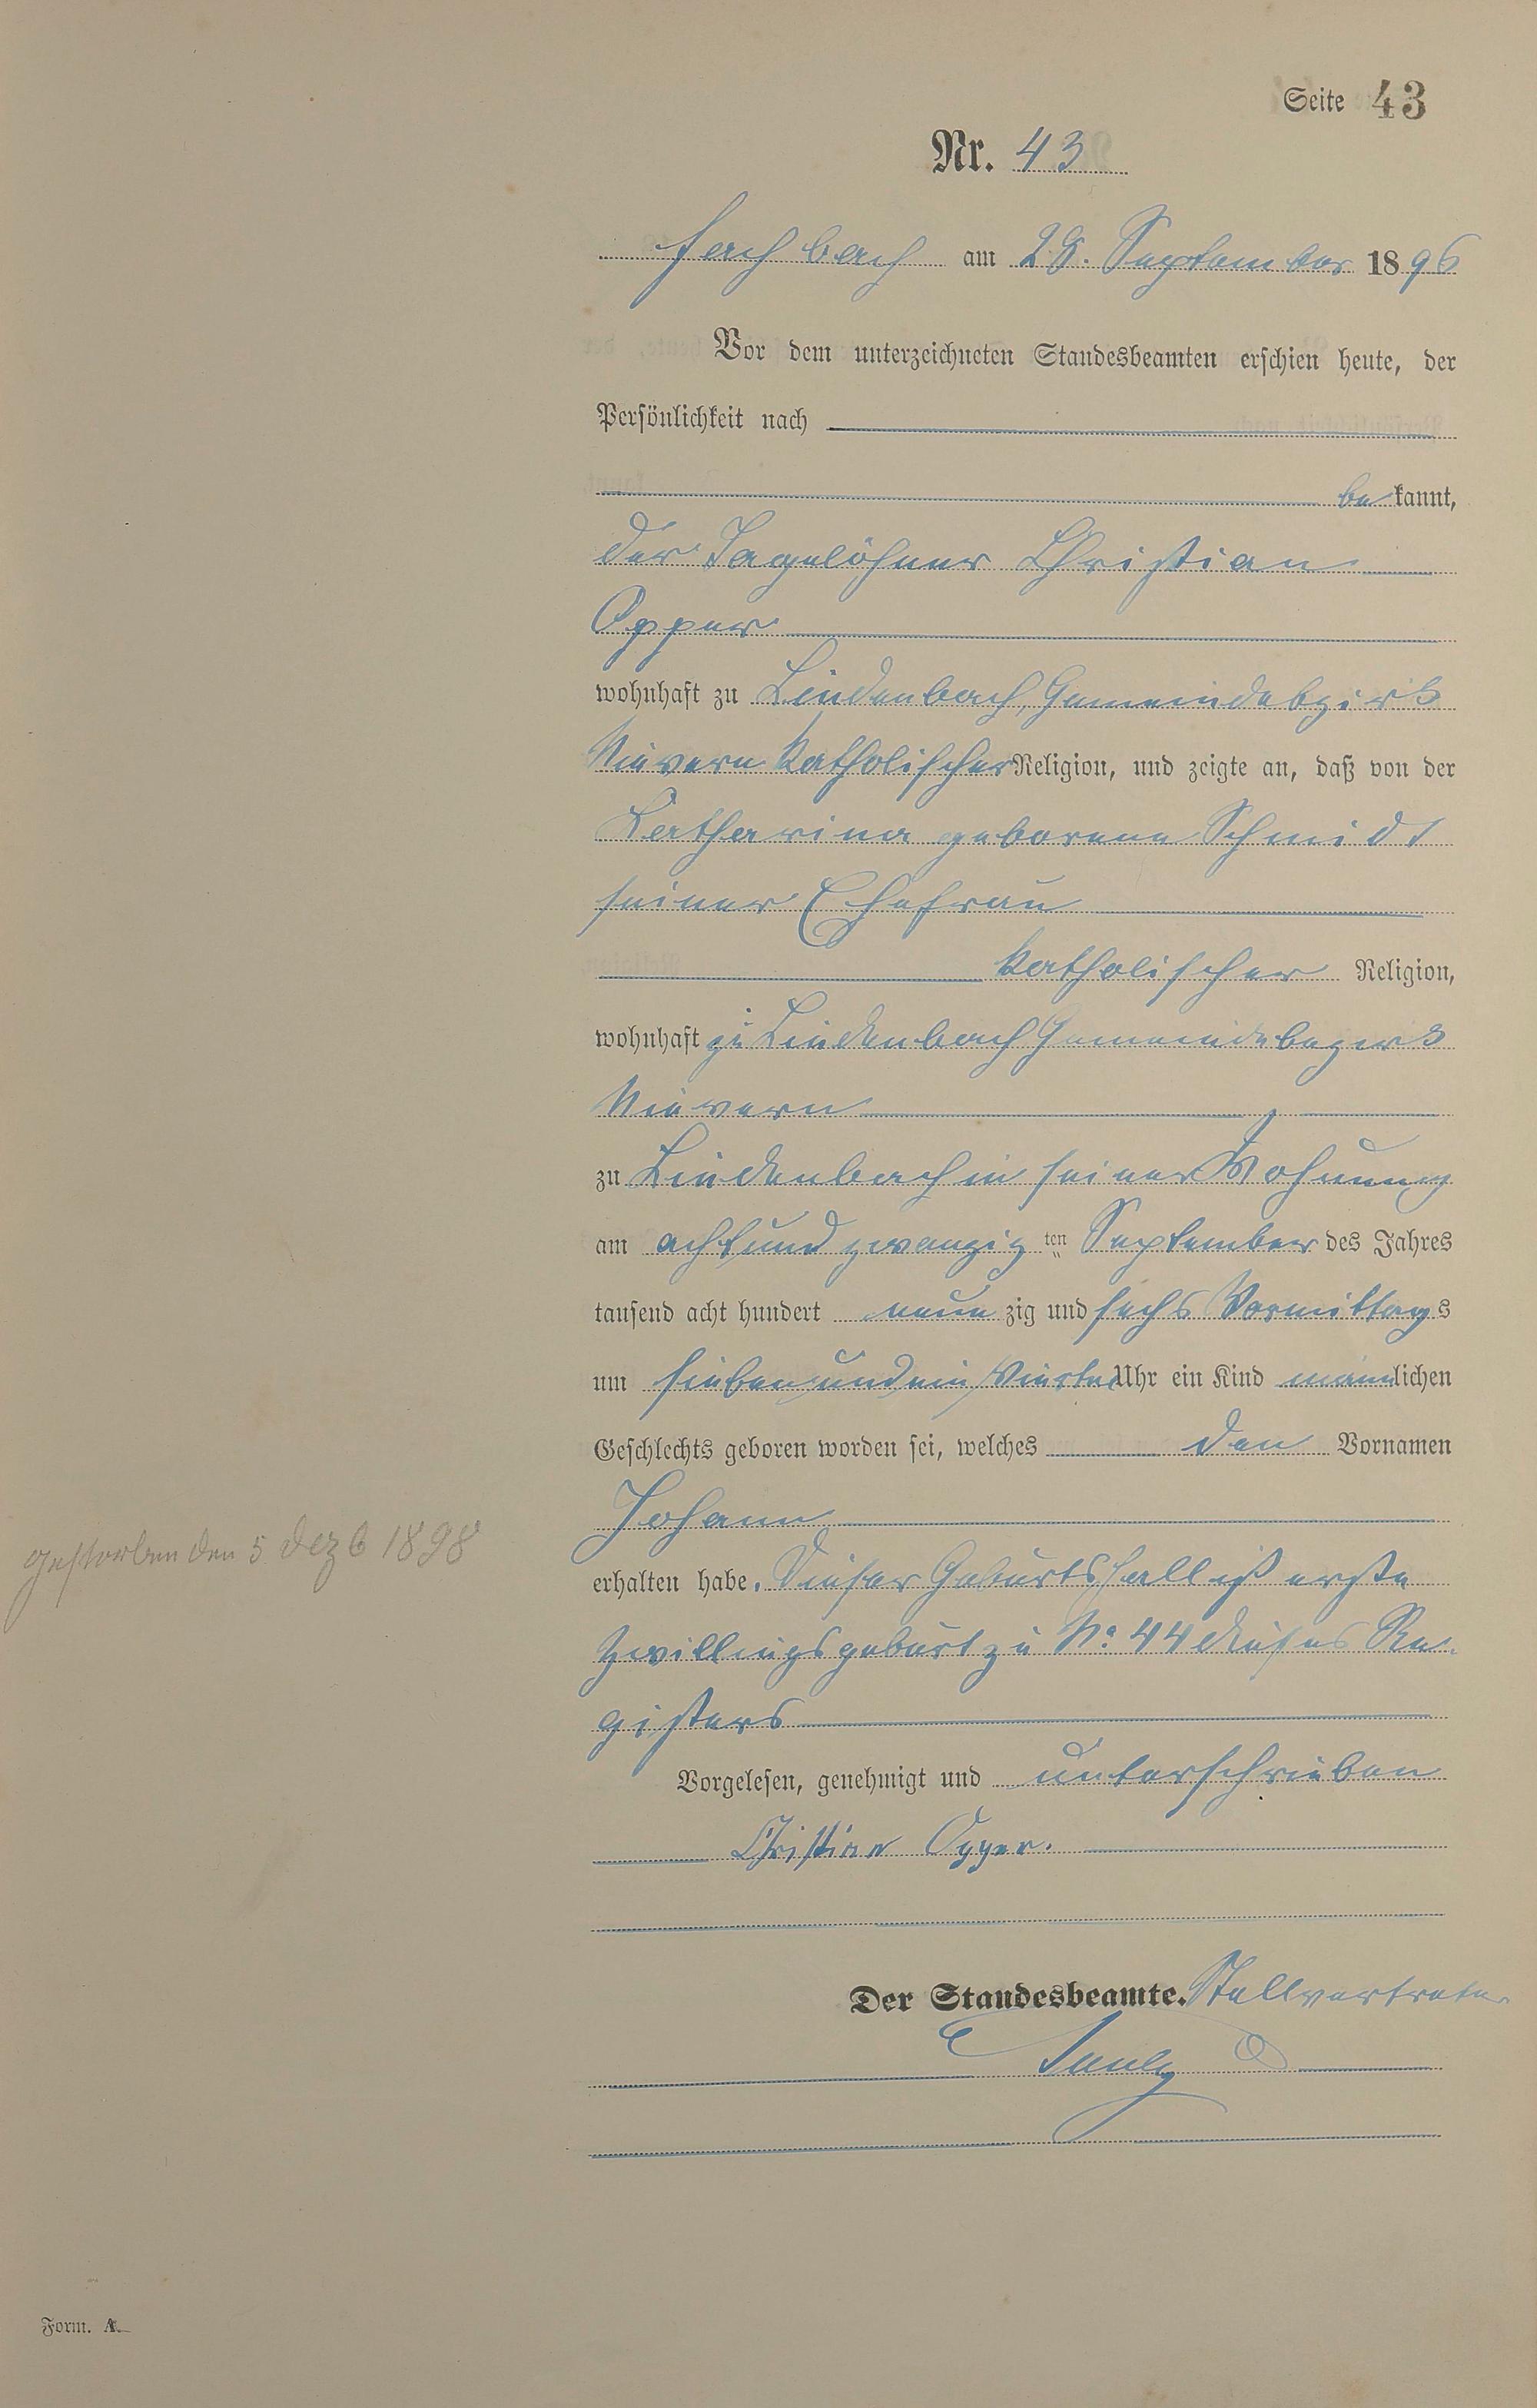 Seite 43
Nr. 43
Fachbach am 28. September 1896
Vor dem unterzeichneten Standesbeamten erschien heute, der
Persönlichkeit nach
bekannt,
der Tagelöhner Christian
Opper
wohnhaft zu Lindenbach, Gemeindebzirk
Nievern katholischer Religion, und zeigte an, daß von der
Katharina geborene Schmidt
seiner Ehefrau
katholischer Religion,
wohnhaft zu Lindenbach Gemeindebezirk
Nievern
zu Lindenbach in seiner Wohnung
am achtundzwanzig ten September des Jahres
tausend acht hundert neunzig und sechs Vormittags
um sieben und ein Viertel Uhr ein Kind männlichen
Geschlechts geboren worden sei, welches den Vornamen
Johann
gestorben den 5 Dezb 1898
erhalten habe. Dieser Geburtsfall ist erste
Zwillingsgeburt zu No. 44 dieses Re-
gisters
Vorgelesen, genehmigt und unterschrieben
Christian Opper.
Der Standesbeamte. Stellvertreter
Form. A.